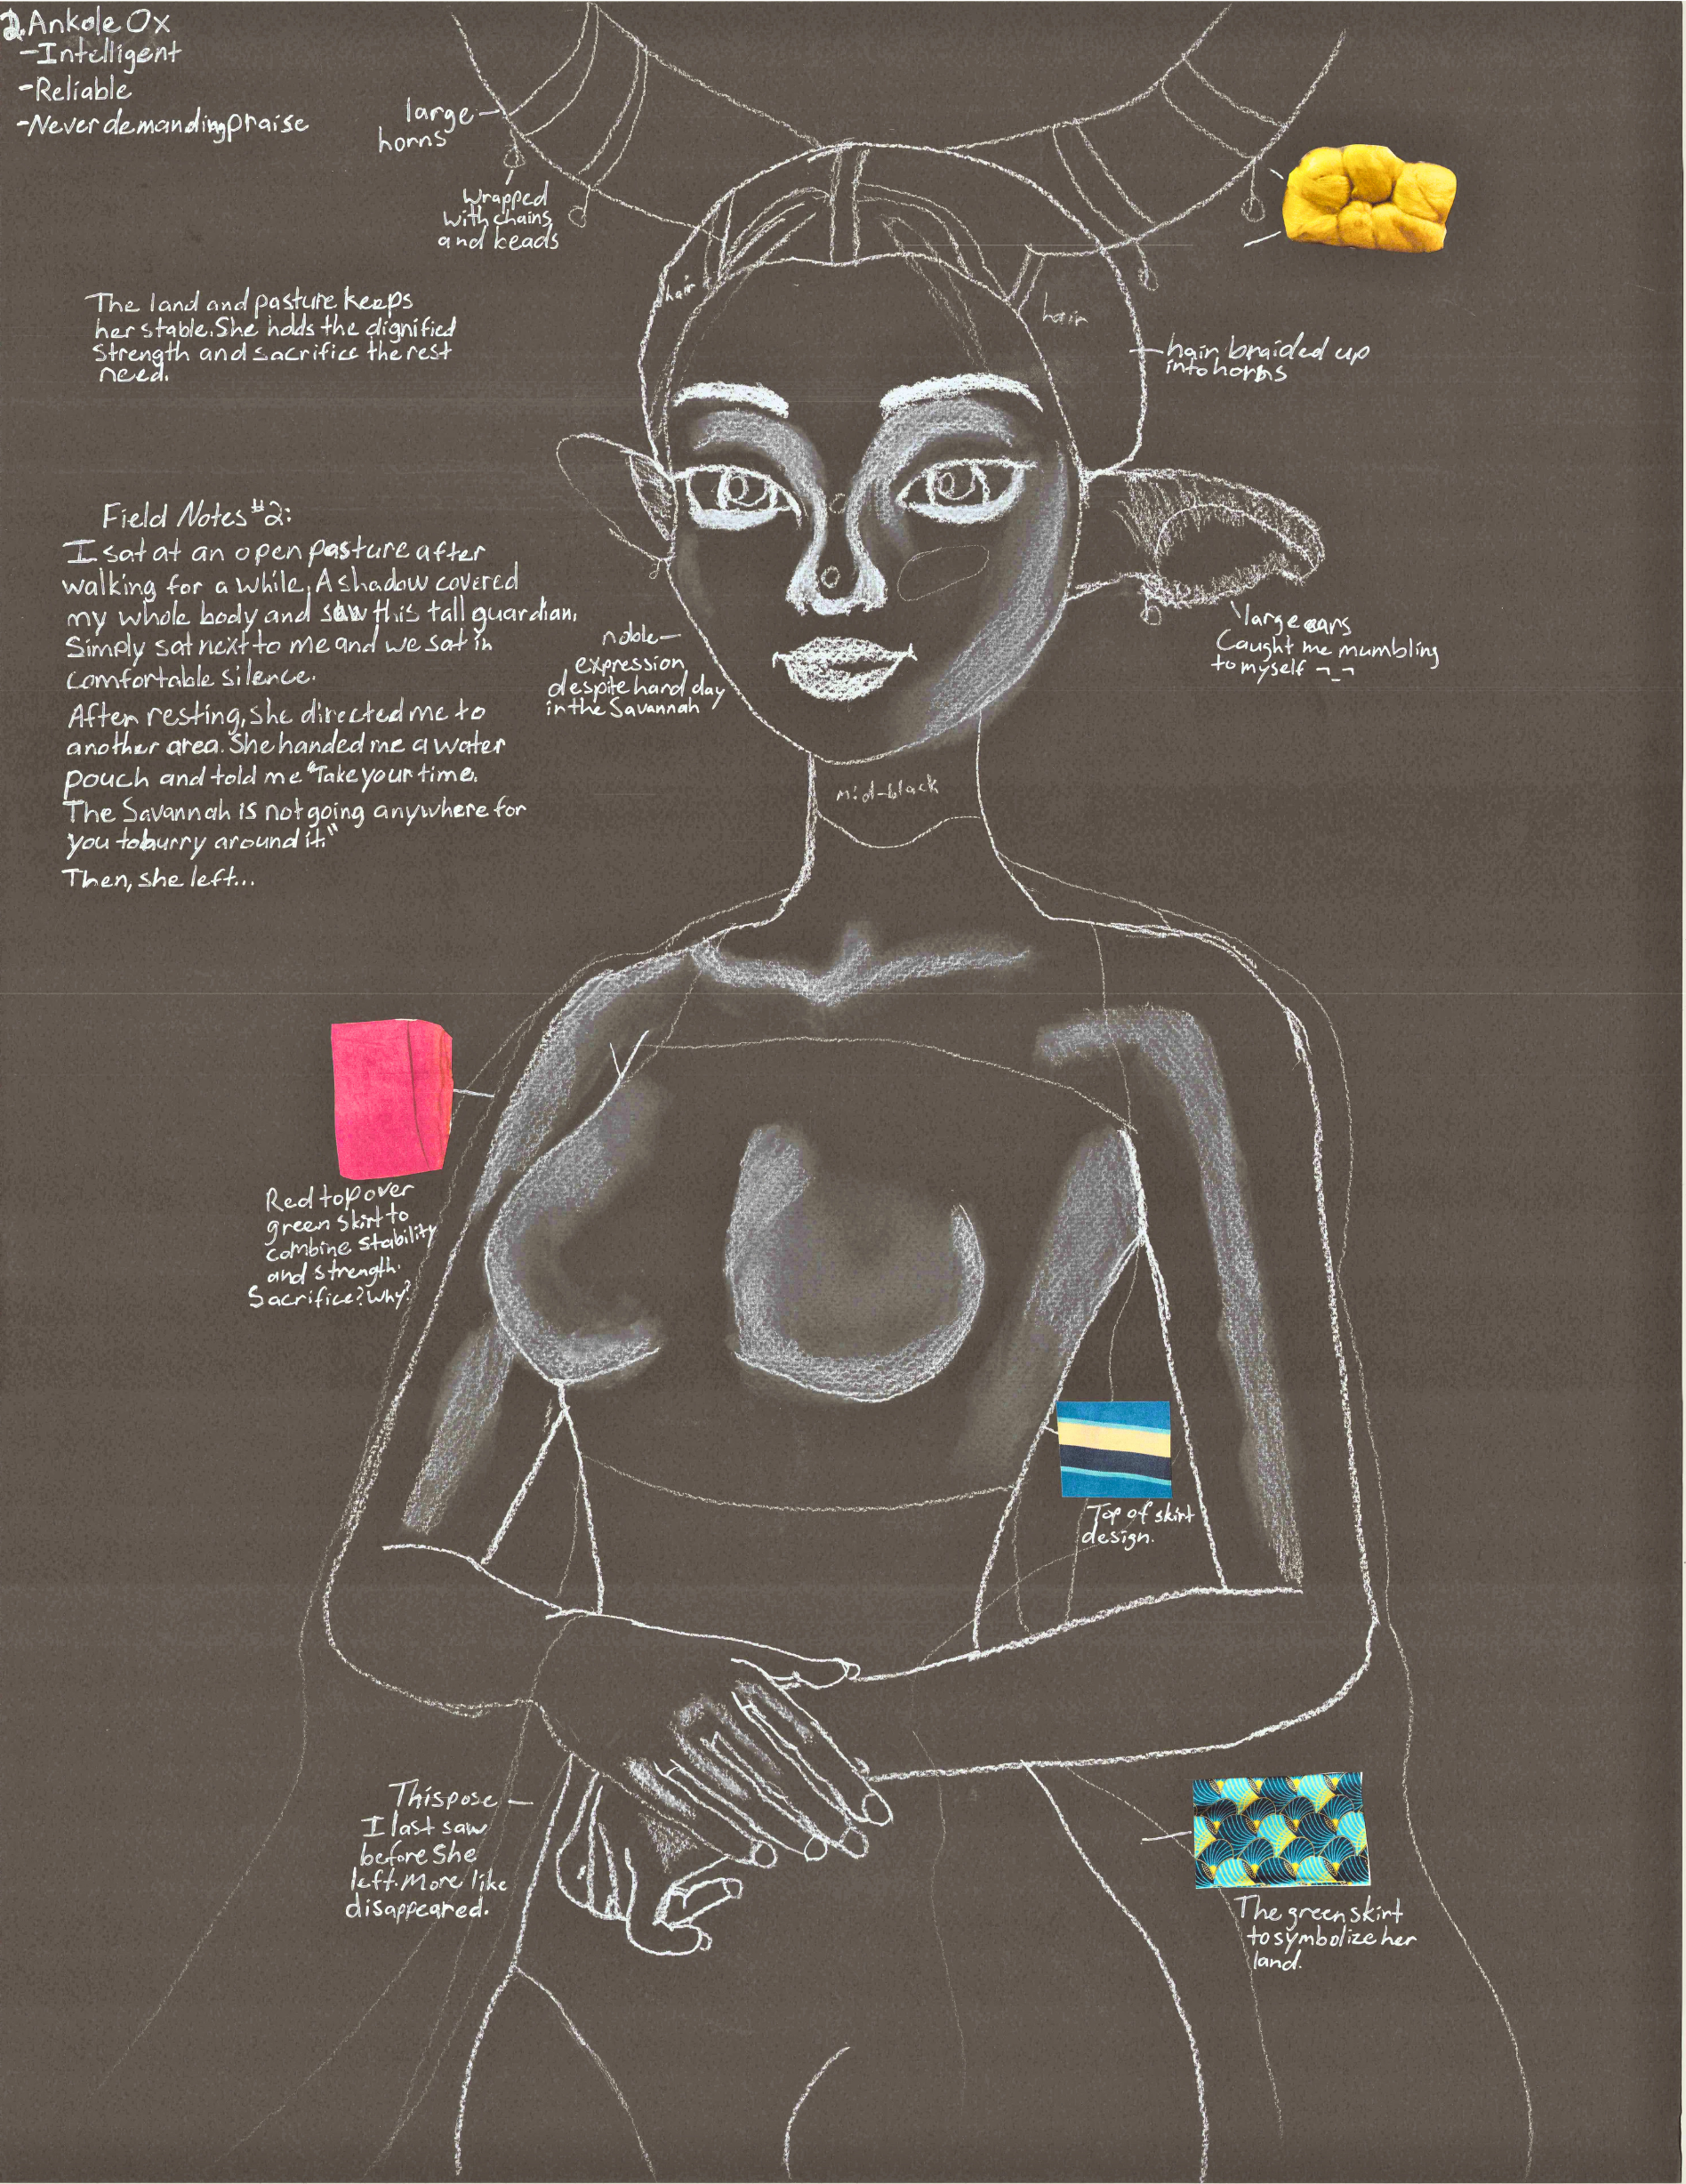 2. Ankole Ox
-Intelligent
-Reliable
-Never demanding praise
large
horns
Wrapped
with chains
and beads
The land and pasture keeps
her stable. She holds the dignified
strength and sacrifice the rest
need.
hair
hair
hair braided up
into horns
Field Notes #2:
I sat at an open pasture after
walking for a while. A shadow covered
my whole body and saw this tall guardian.
Simply sat next to me and we sat in
comfortable silence.
After resting, she directed me to
another area. She handed me a water
pouch and told me "Take your time.
The Savannah is not going anywhere for
you to hurry around it."
Then, she left...
noble
expression
despite hard day
in the Savannah
large ears
Caught me mumbling
to myself ¬_¬
mid-black
Red top over
green skirt to
combine stability
and strength.
Sacrifice? Why?
Top of skirt
design.
This pose
I last saw
before she
left. More like
disappeared.
The green skirt
to symbolize her
land.